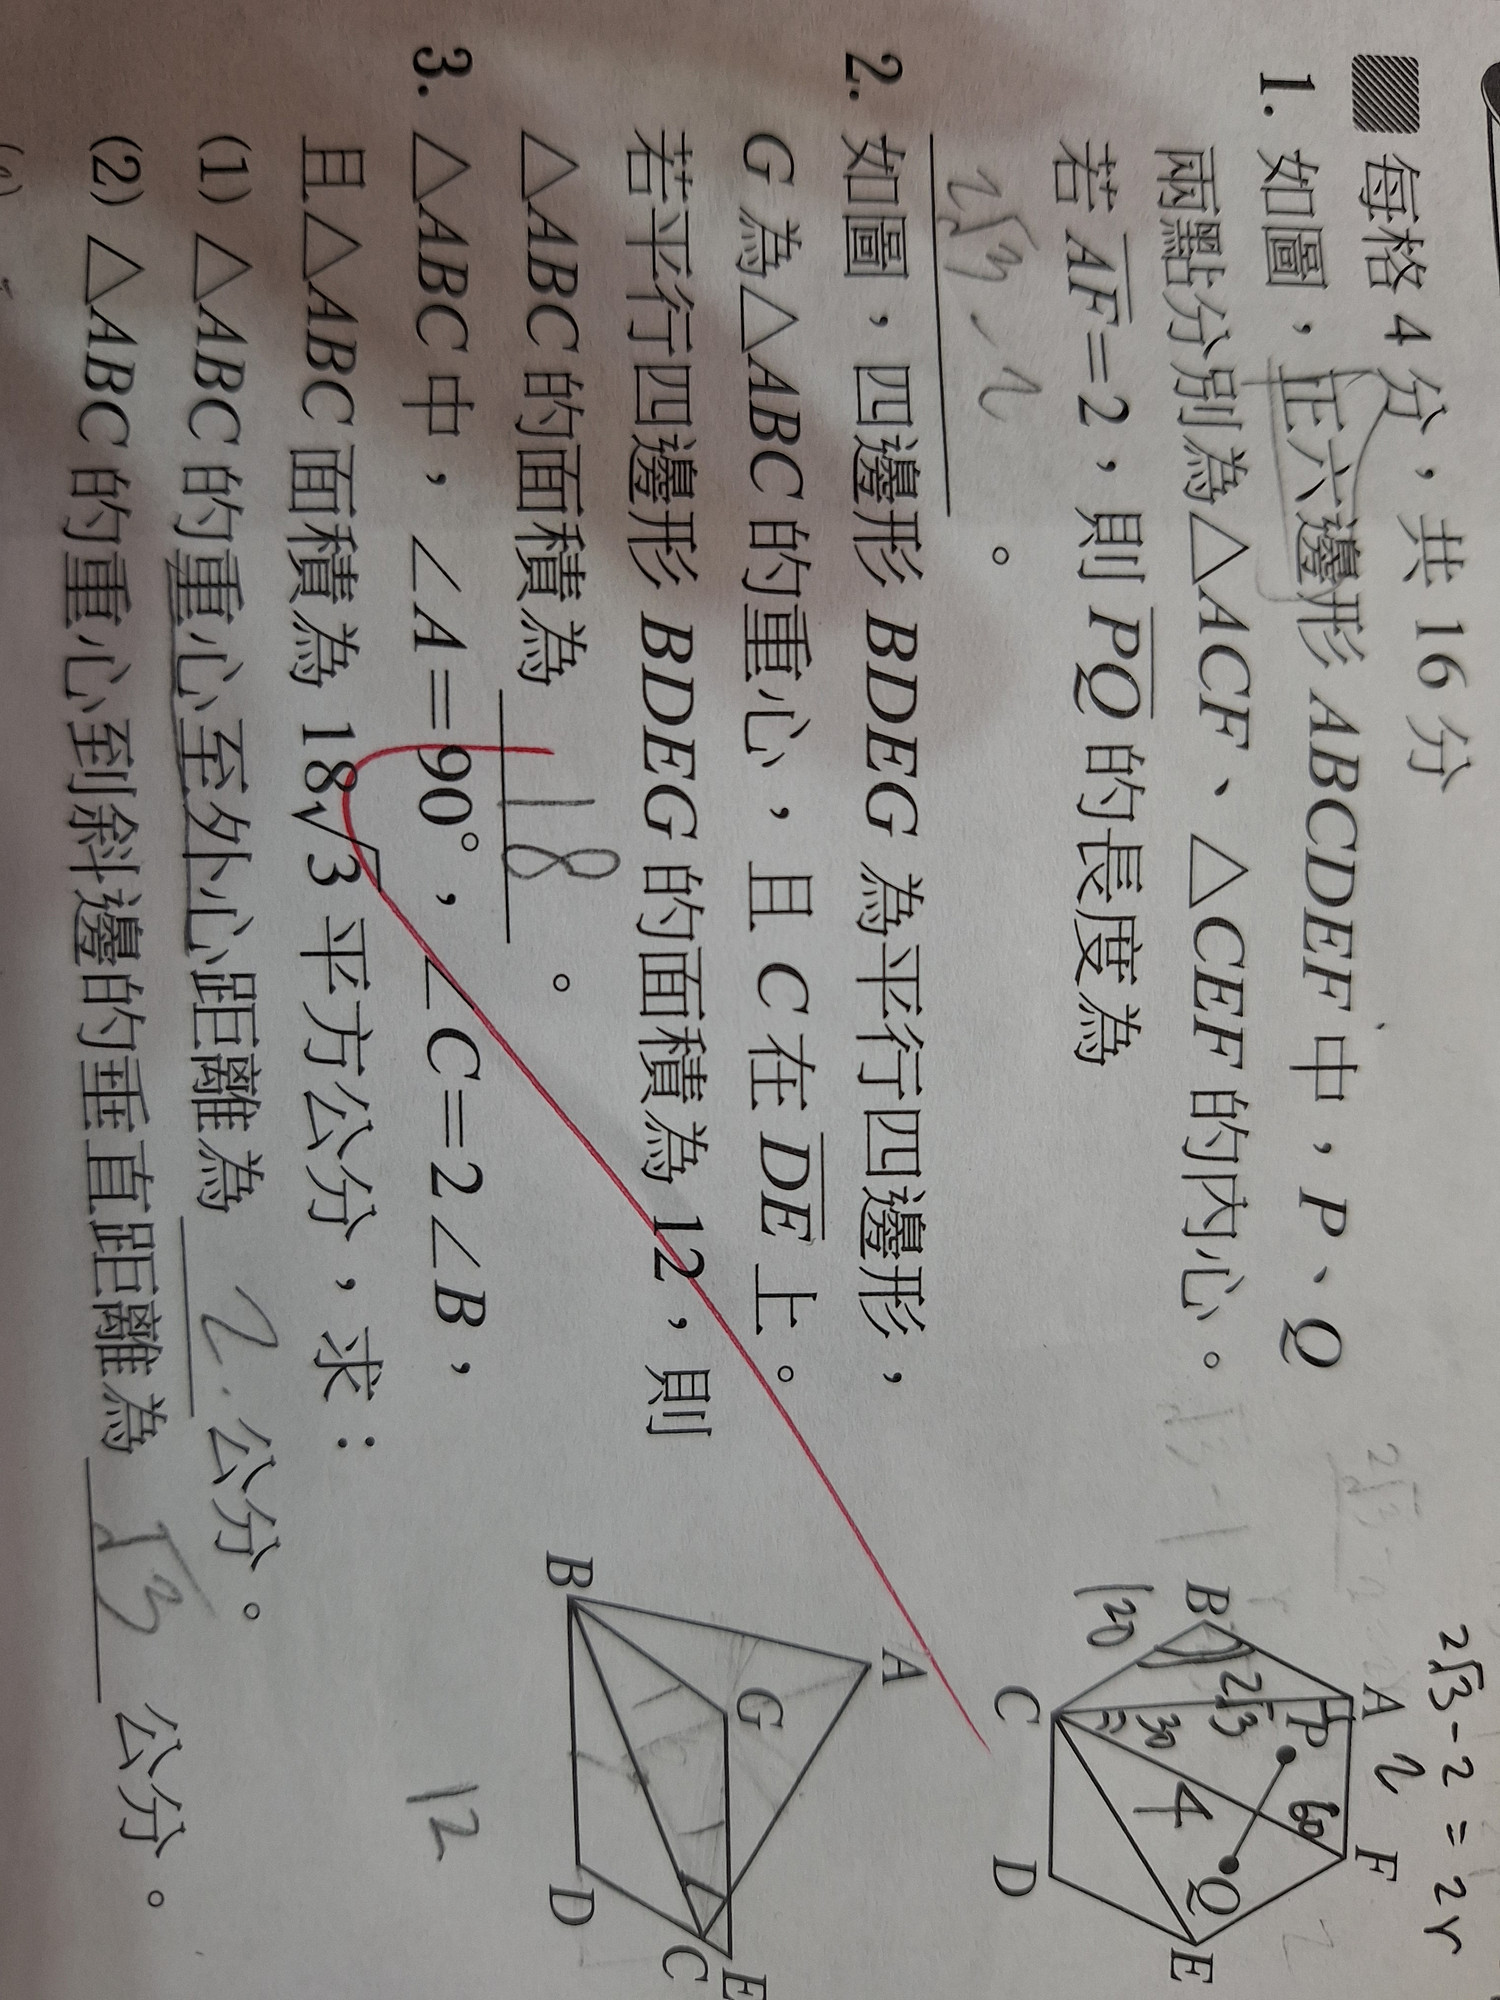 每格 4 分，共 16 分
1. 如圖，正六邊形 ABCDEF 中，P、Q
兩點分別為△ACF、△CEF 的內心。
若 AF=2，則 PQ 的長度為
2√3-2。
2√3-2=2r
√3-1
A 2 F
B P 60
2√3 30 4 Q
120
C D E
2. 如圖，四邊形 BDEG 為平行四邊形，
G 為△ABC 的重心，且 C 在 DE 上。
若平行四邊形 BDEG 的面積為 12，則
△ABC 的面積為 18。
A
G
B D C E
12
3. △ABC 中，∠A=90°，∠C=2∠B，
且△ABC 面積為 18√3 平方公分，求：
(1) △ABC 的重心至外心距離為 2 公分。
(2) △ABC 的重心到斜邊的垂直距離為 √3 公分。